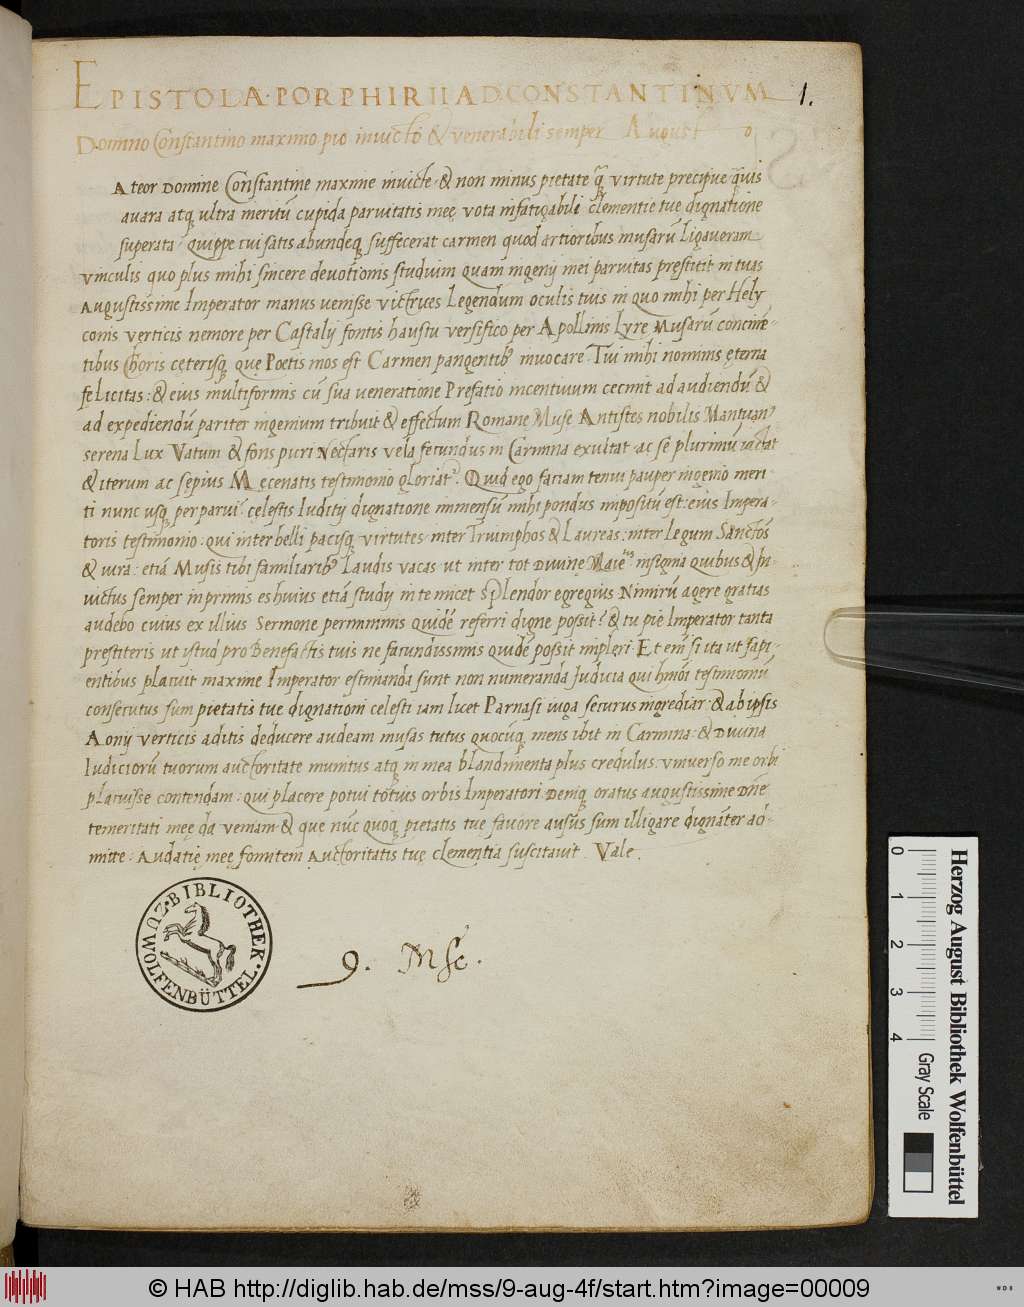 EPISTOLA·PORPHIRII AD·CONSTANTINVM 1.
Domino Constantino maximo pio inuicto & venerabili semper August o
Ateor Domine Constantine maxime inuicte & non minus pietate q̃ virtute precipue q̃uis
auara atq ultra meritũ cupida paruitatis meę vota infatigabili clementie tue dignatione
superata quippe cui satis abundeq suffecerat carmen quod artioribus musarũ ligaueram
vinculis quo plus mihi sincere deuotionis studium quam ingenij mei paruitas pręstitit in tuas
Augustissime Imperator manus uenisse victrices Legendum oculis tuis in quo mihi per Hely
conis verticis nemore per Castalij fontis haustu versifico per Apollinis Lyrę Musarũ concinẽ-
tibus Choris cęterisq quę Poetis mos est Carmen pangentib9 inuocare Tui mihi nominis ęterna
felicitas: & eius multiformis cũ sua ueneratione Prefatio incentiuum cecinit ad audiendũ &
ad expediendũ pariter ingenium tribuit & effectum Romane Muse Antistes nobilis Mantuan9
serena Lux Vatum & fons puri Nectaris vela fecundus in Carmina exultat ac se plurimũ iactat
& iterum ac sępius Męcenatis testimonio gloriat. Quid ego faciam tenui pauper ingenio meri
ti nunc usq perparui. cęlestis Iudity dignatione immensũ mihi pondus impositũ est: eius Impera-
toris testimonio: qui inter belli pacisq virtutes inter Triumphos & Laureas: inter legum Sanctões
& iura: etiã Musis tibi familiarib9 Laudis vacas ut inter tot Diuinę Maie insignia quibus & In-
uictus semper in primis es huius etiã studij in te micet Splendor egregius Nimirũ agere gratias
audebo cuius ex illius Sermone perminimis quidẽ referri digne possit? & tu pie Imperator tanta
prestiteris ut istud pro Benefactis tuis ne facundissimis quidẽ possit impleri. Et eni si ita ut sapi-
entibus placuit maxime Imperator estimanda sunt non numeranda Iudicia qui hmõi testimoniũ
consecutus sum pietatis tue dignationi celesti iam licet Parnasi iuga securus ingrediar: & ab ipsis
Aonij verticis aditis deducere audeam musas tutus quocũq mens ibit in Carmina: & Diuina
Iudiciorũ tuorum auctoritate munitus atq in mea blandimenta plus credulus: vniuerso me orbi
placuisse contendam: qui placere potui totius orbis Imperatori Deniq oratus augustissime Dñe
temeritati meę da veniam & que nũc quoq pietatis tuę fauore ausũs sum illigare dignãter ad-
mitte: Audatię meę fomitem Auctoritatis tuę clementia suscitauit. Vale.
BIBLIOTHEK · ZU WOLFENBÜTTEL ·
9. Msc.
0 1 2 3 4
Gray Scale
Herzog August Bibliothek Wolfenbüttel
© HAB http://diglib.hab.de/mss/9-aug-4f/start.htm?image=00009